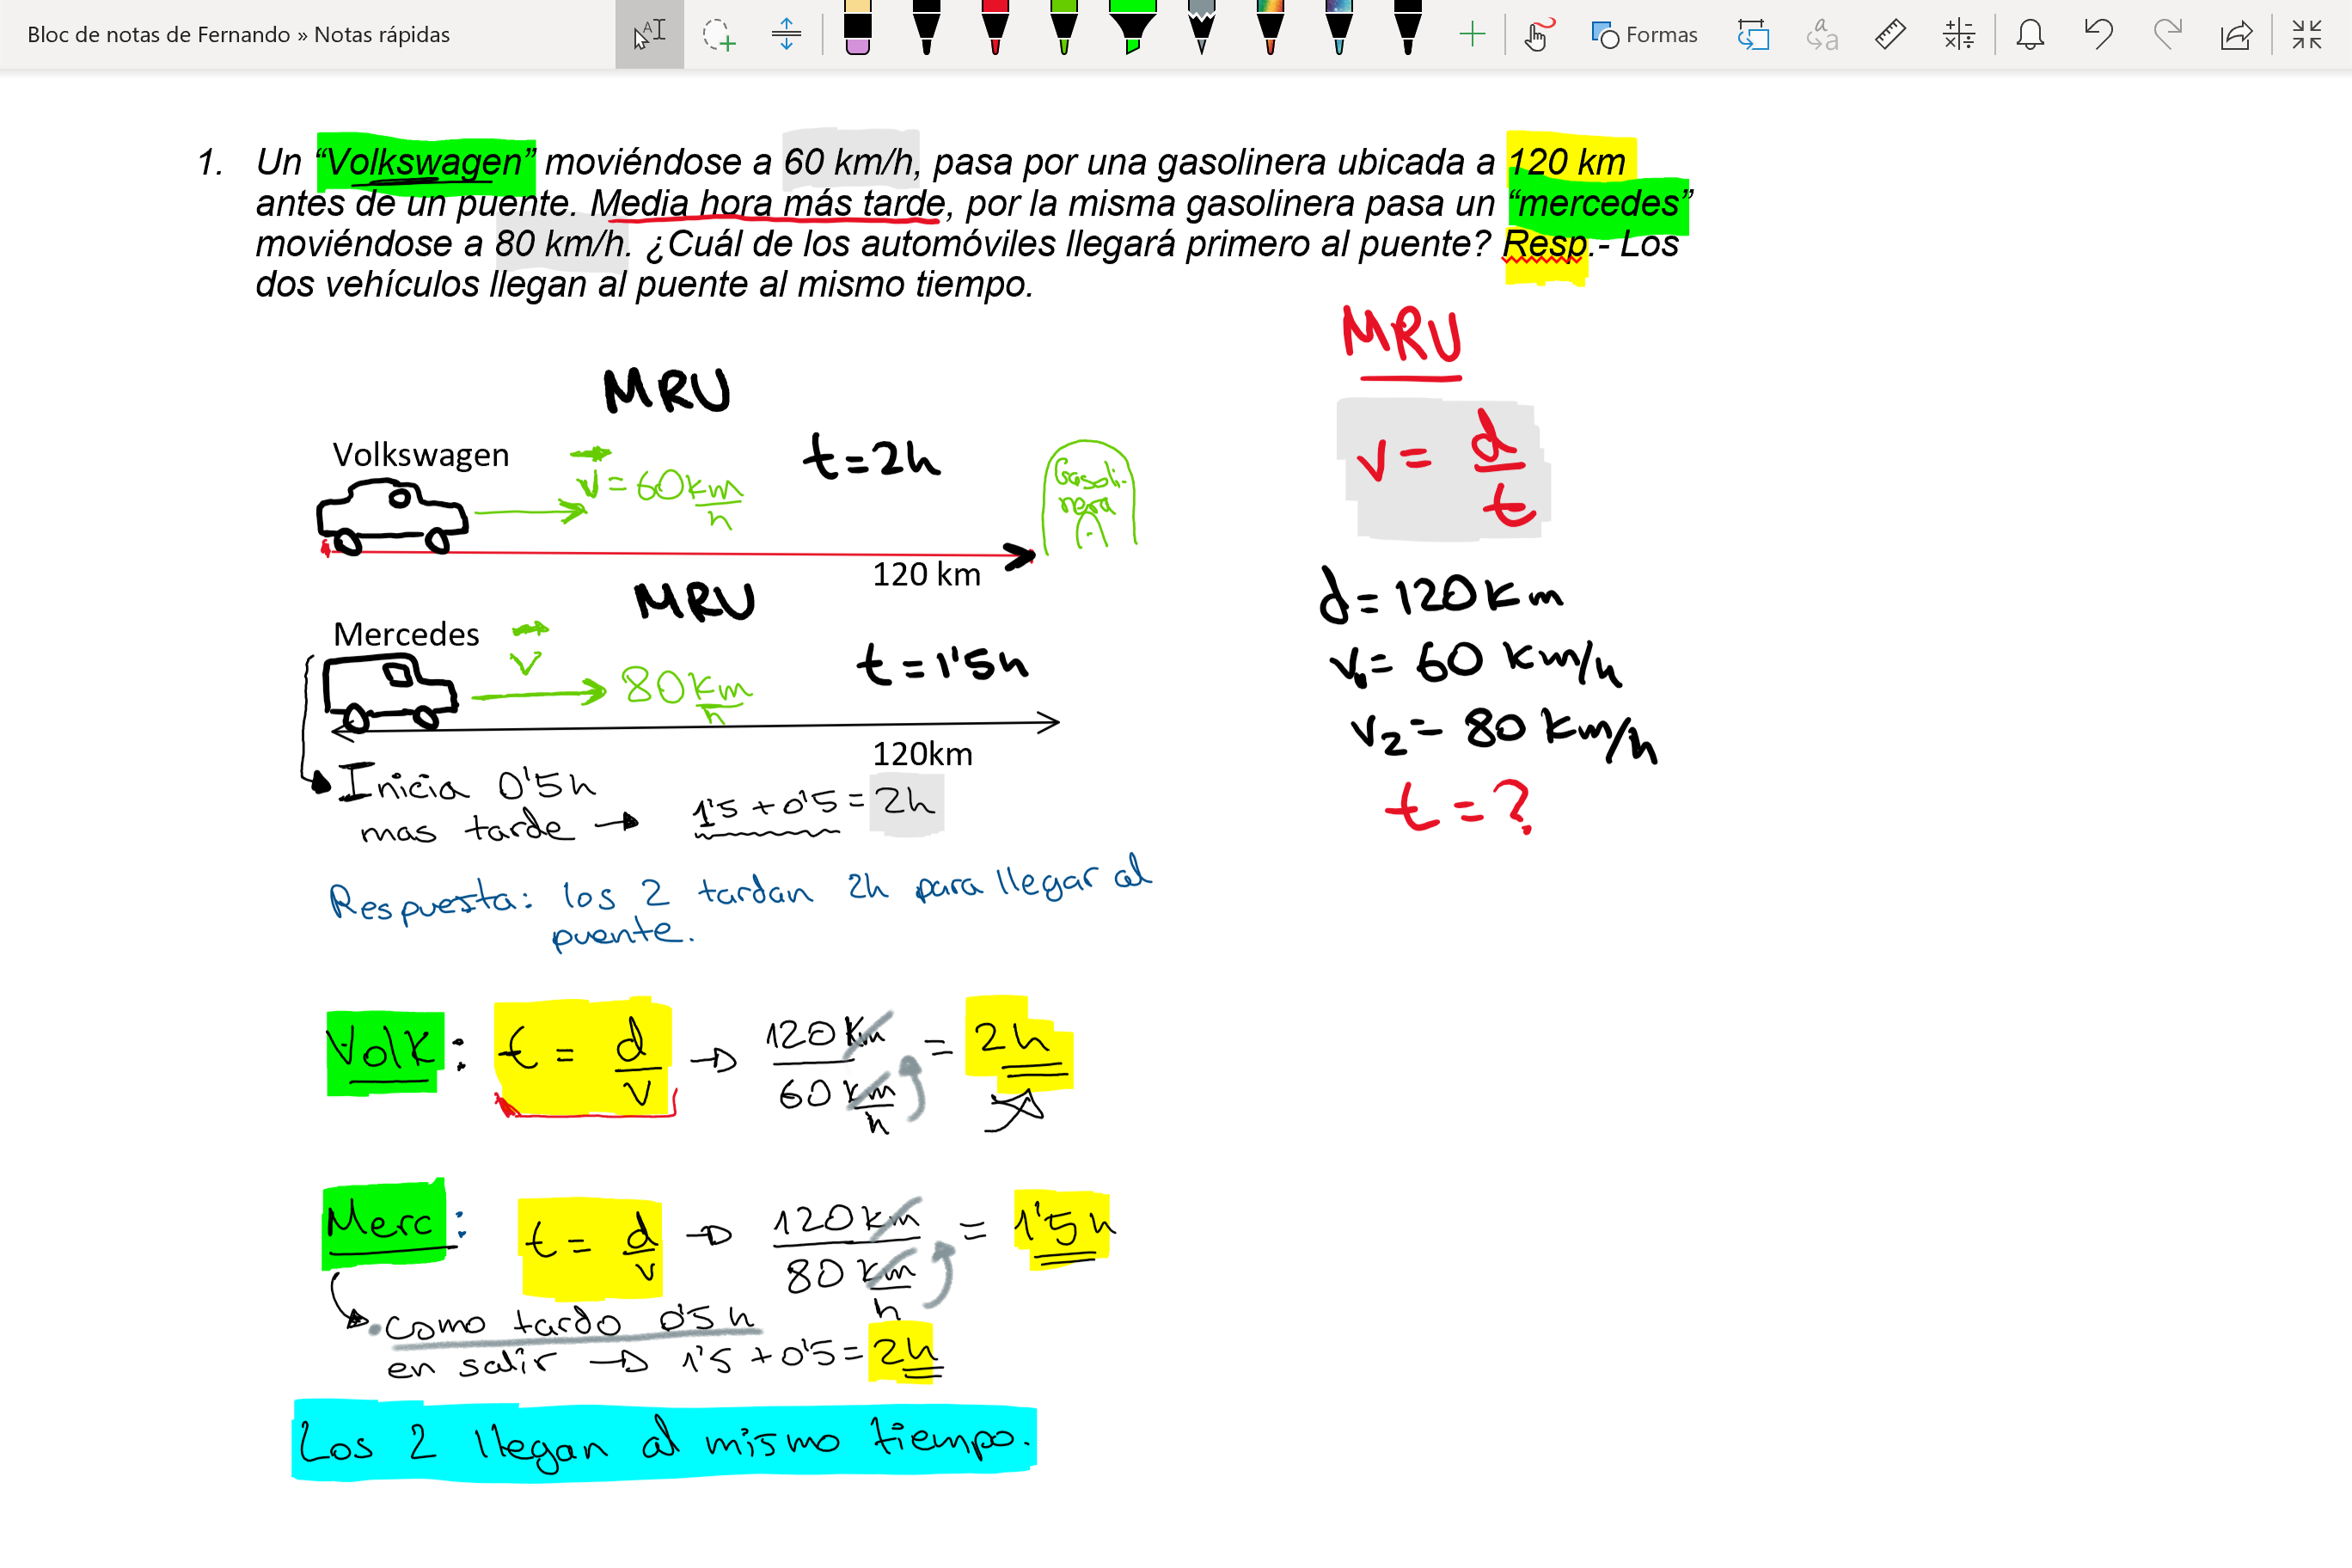 Bloc de notas de Fernando » Notas rápidas
Formas
1. Un “Volkswagen” moviéndose a 60 km/h, pasa por una gasolinera ubicada a 120 km
antes de un puente. Media hora más tarde, por la misma gasolinera pasa un “mercedes”
moviéndose a 80 km/h. ¿Cuál de los automóviles llegará primero al puente? Resp.- Los
dos vehículos llegan al puente al mismo tiempo.
MRU
v = d/t
d = 120 Km
v₁ = 60 Km/h
v₂ = 80 Km/h
t = ?
MRU
Volkswagen
v = 60 km/h
t = 2h
Gasoli-
nera
120 km
MRU
Mercedes
v
80 km/h
t = 1'5h
120km
Inicia 0'5h
mas tarde → 1'5 + 0'5 = 2h
Respuesta: los 2 tardan 2h para llegar al
puente.
Volk: t = d/v → 120 Km / 60 km/h = 2h
Merc: t = d/v → 120 km / 80 km/h = 1'5 h
como tardo 0'5 h
en salir → 1'5 + 0'5 = 2h
Los 2 llegan al mismo tiempo.